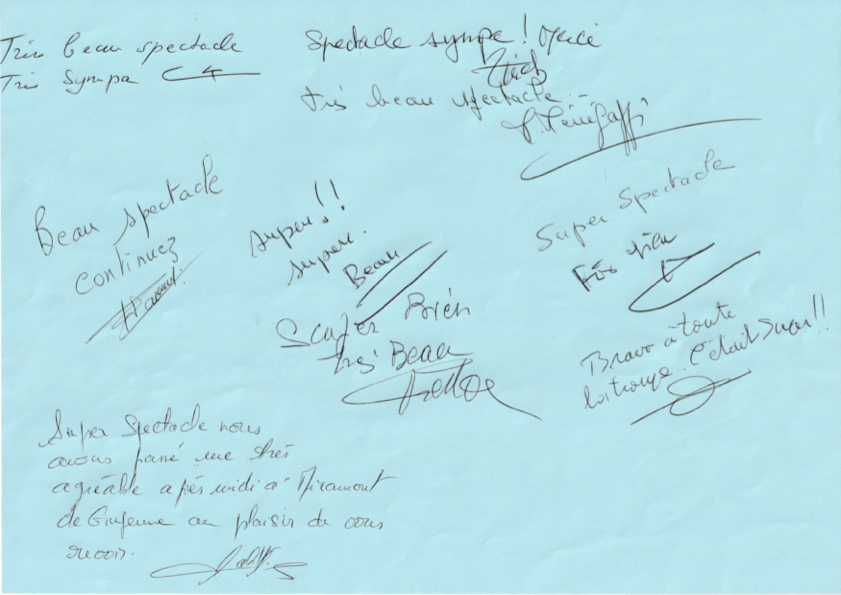 Très beau spectacle
Très Sympa
Spectacle sympa ! Merci
très beau spectacle
Beau spectacle
continuez
super !!
super.
Beau
Super Spectacle
très bien
Super Bién
très Beau
Bravo à toute
la troupe. C'était Super !!
Super Spectacle nous
avons passé une très
agréable après midi à Miramont
de Guyenne au plaisir de vous
revoir.